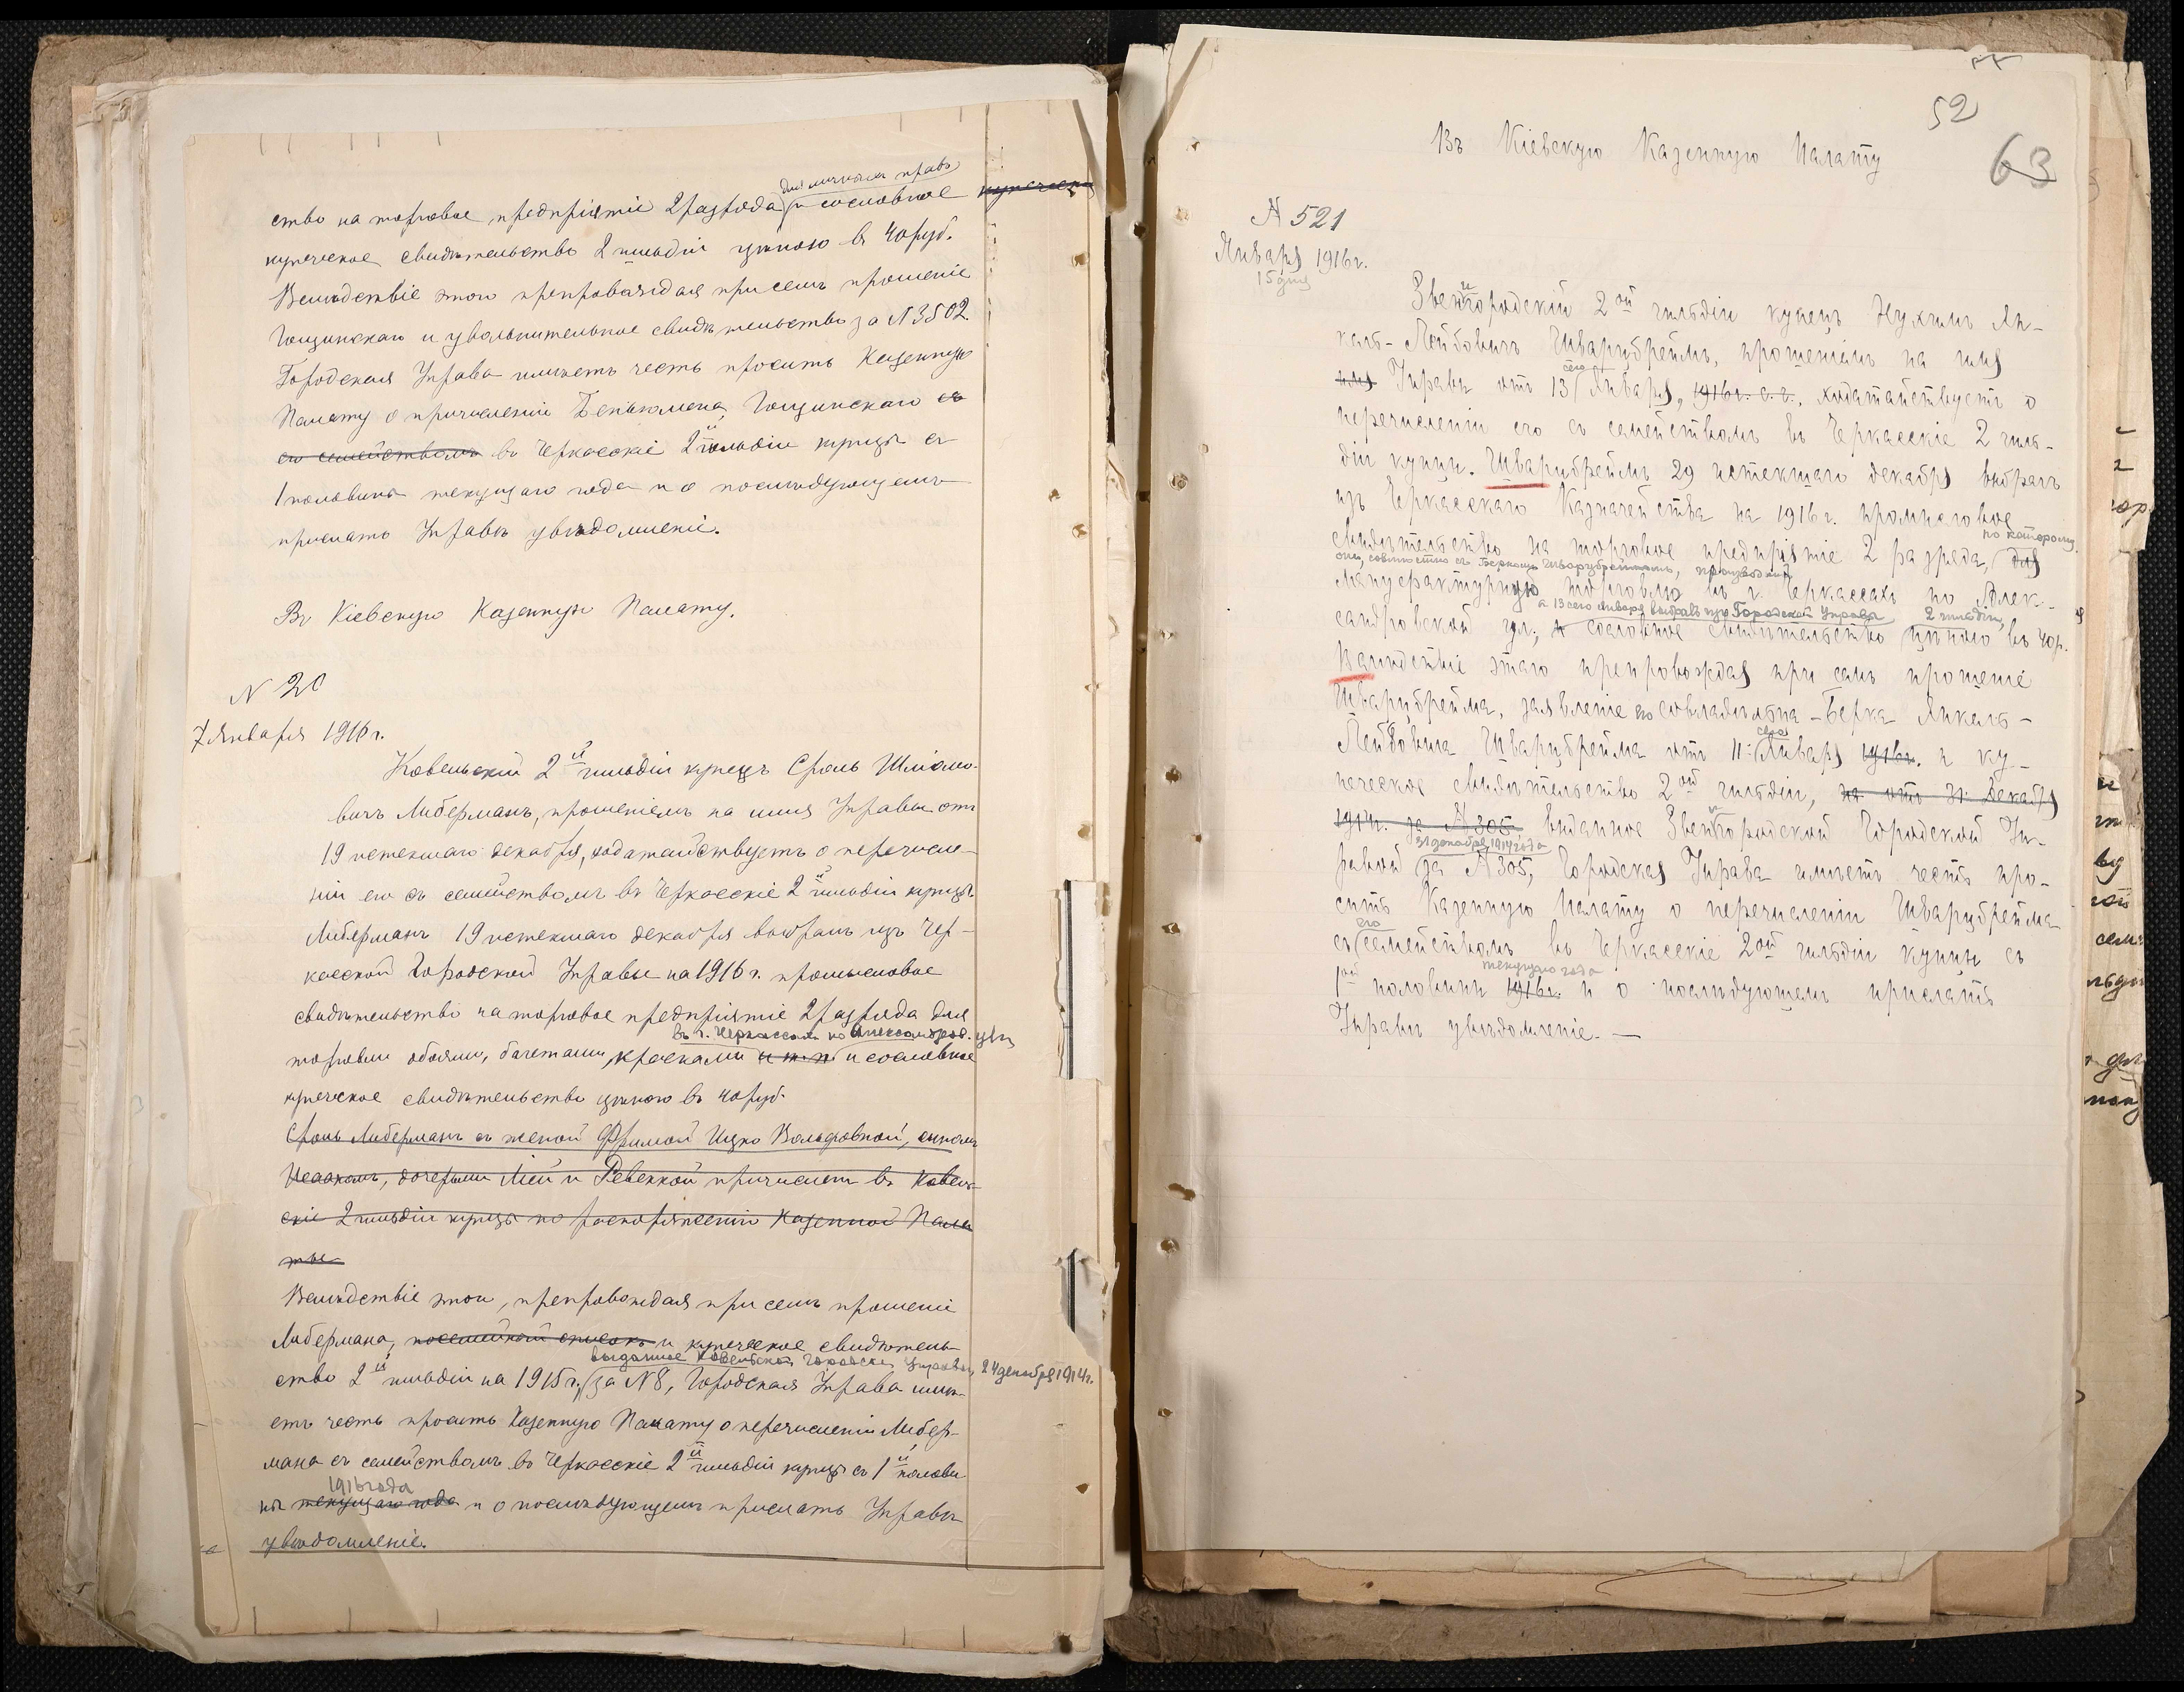 для личныхъ правъ
ство на торговое предпріятіе 2 разряда и сословное купеческое
купеческое свидѣтельство 2 гильдіи цѣною въ 40 руб.
Вслѣдствіе этого препровождая при семъ прошеніе
Гощинскаго и увольнительное свидѣтельство за N 3502.
Городская Управа имѣетъ честь просить Казенную
Палату о причисленіи Беньюмена Гощинскаго съ
его семействомъ въ Черкасскіе 2й гильдіи купцы съ
1 половины текущаго года и о послѣдующемъ
прислать Управѣ увѣдомленіе.
Въ Кіевскую Казенную Палату.
N 20
7 Января 1916 г.
Ковельскій 2й гильдіи купецъ Сроль Шліомо-
вичъ Либерманъ, прошеніемъ на имя Управы отъ
19 истекшаго декабря, ходатайствуетъ о перечисле-
ніи его съ семействомъ въ Черкасскіе 2й гильдіи купцы.
Либерманъ 19 истекшаго декабря выбралъ изъ Чер-
касской Городской Управы на 1916 г. промысловое
свидѣтельство на торговое предпріятіе 2 разряда для
въ г. Черкассахъ по Александров. ул.
торговли обоями, багетами, красками и т. п. и сословное
купеческое свидѣтельство цѣною въ 40 руб.
Сроль Либерманъ съ женой Фримой Ицко Вольфовной, сыномъ
Исаакомъ, дочерьми Ліей и Ревеккой причисленъ въ Ковель-
скіе 2 гильдіи купцы по распоряженію Казенной Пала
ты
Вслѣдствіе этого, препровождая при семъ прошеніе
Либермана, посемейный списокъ и купеческое свидѣтель-
выданное Ковельской Городской Управой 24 декабря 1914 г.
ство 2й гильдіи на 1915 г., за N 8, Городская Управа имѣ-
етъ честь просить Казенную Палату о перечисленіи Либер-
мана съ семействомъ въ Черкасскіе 2й гильдіи купцы съ 1й полови-
1916 года
ны текущаго года и о послѣдующемъ прислать Управѣ
увѣдомленіе.
52
63
Въ Кіевскую Казенную Палату
N 521
Января 1916 г.
15 дня
Звенигородскій 2ой гильдіи купецъ Нухимъ Ян-
кель-Лейбовичъ Шварцбреймъ, прошеніемъ на имя
сего
имя Управы отъ 13 Января, 1916 г. с. г., ходатайствуетъ о
перечисленіи его съ семействомъ въ Черкасскіе 2 гиль-
діи купцы. Шварцбреймъ 29 истекшаго декабря выбралъ
изъ Черкасскаго Казначейства на 1916 г. промысловое
по которому
свидѣтельство на торговое предпріятіе 2 разряда, для
онъ, совмѣстно съ Беркомъ Шварцбреймомъ, производитъ
мануфактурную торговлю въ г. Черкассахъ по Алек-
а 13 сего Января выбралъ изъ Городской Управы 2 гильдіи
сандровской ул; и сословное свидѣтельство цѣною въ 40 р.
Вслѣдствіе этого препровождая при семъ прошеніе
Шварцбрейма, заявленіе совладѣльца - Берка Янкель-
сего
Лейбовича Шварцбрейма отъ 11 Января 1916 г. и ку-
печеское свидѣтельство 2ой гильдіи, отъ 31 Декабря
1914 г. за N 305, выданное Звенигородской Городской Уп-
31 декабря 1914 года
равой за N 305, Городская Управа имѣетъ честь про-
сить Казенную Палату о перечисленіи Шварцбрейма
его
съ семействомъ въ Черкасскіе 2ой гильдіи купцы съ
текущаго года
1ой половины 1916 г. и о послѣдующемъ прислать
Управѣ увѣдомленіе. —